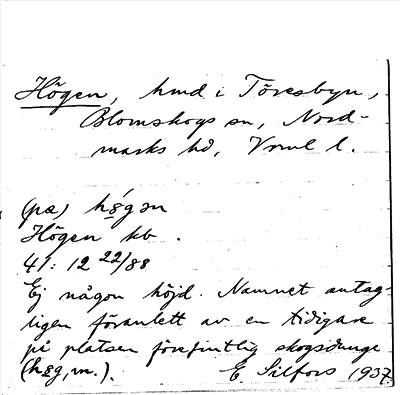 Högen, hmd i Töresbyn,
Blomskogs sn, Nord-
marks hd, Vrml l.
(pæ) hǿgən
Högen kb.
41: 12 22/88
Ej någon höjd. Namnet antag-
ligen föranlett av en tidigare
på platsen förefintlig skogsdunge
(høg, m.). E. Silfors 1937.